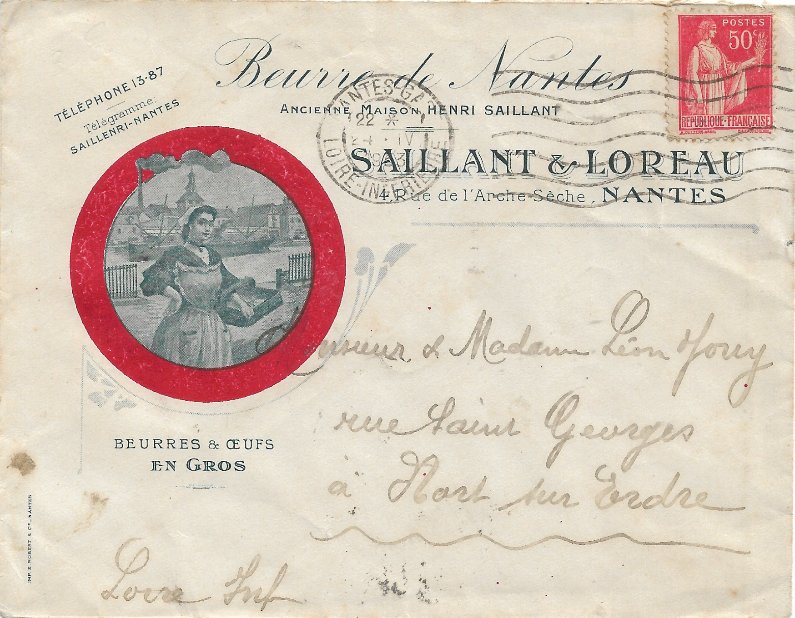 Beurre de Nantes
ANCIENNE MAISON HENRI SAILLANT
SAILLANT & LOREAU
4 Rue de l'Arche-Sèche, NANTES
TÉLÉPHONE 13-87
Télégramme
SAILLENRI-NANTES
POSTES
50c
REPUBLIQUE-FRANÇAISE
NANTES-GA
22 *
IV
LOIRE-INF
BEURRES & ŒUFS
EN GROS
Monsieur & Madame Léon
rue Saint Georges
à Nort sur Erdre
Loire Inf